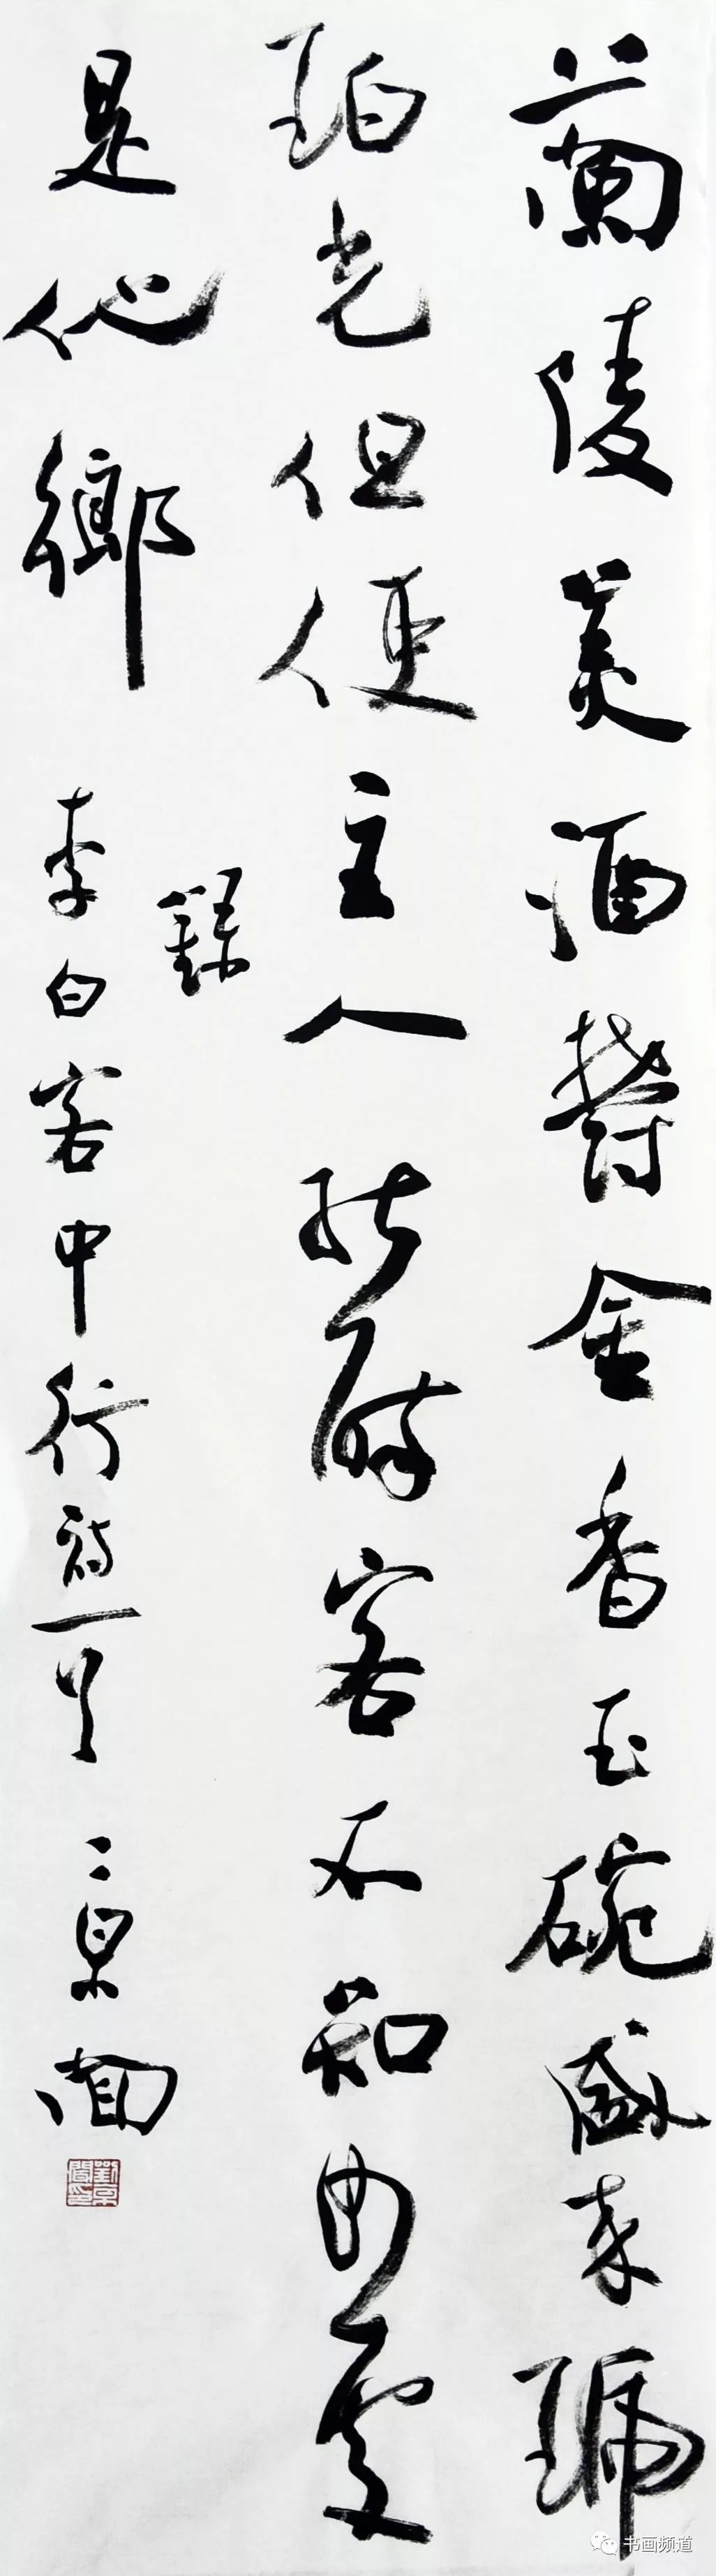 蘭陵美酒鬱金香玉碗盛來琥
珀光但使主人能醉客不知何處
是他鄉
錄
李白客中行詩一首 京聞
书画频道